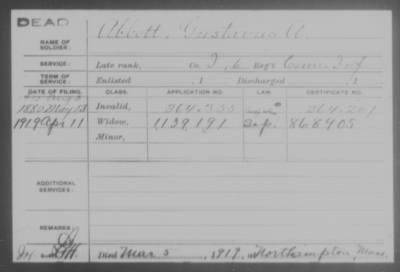 DEAD
NAME OF SOLDIER: Abbott, Gustavus A
SERVICE: Late rank, Co. I, 6 Reg't Conn Inf
TERM OF SERVICE: Enlisted , 1 Discharged , 1
DATE OF FILING. CLASS. APPLICATION NO. LAW. CERTIFICATE NO.
1880 May Invalid,
1919 Apr 11 Widow, 1,139,191 868905
Minor,
ADDITIONAL SERVICES:
REMARKS:
Died Mar 5, 1919, at Northampton, Mass.